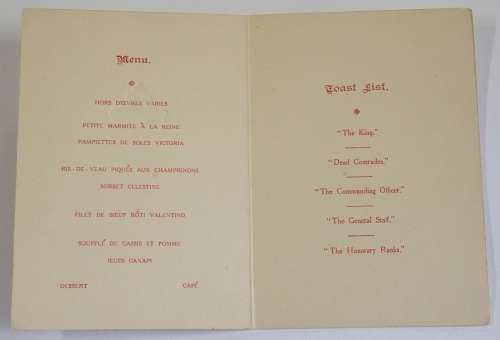 Menu.
HORS D'ŒUVRES VARIES
PETITE MARMITE À LA REINE
PAMPIETTES DE SOLES VICTORIA
RIS-DE-VEAU PIQUÉS AUX CHAMPIGNONS
SORBET CELESTINE
FILET DE BŒUF RÔTI VALENTINO
SOUFFLÉ DE CASSIS ET POMME
ŒUFS CANAPI
DESSERT CAFÉ
Toast List.
"The King."
"Dead Comrades."
"The Commanding Officer."
"The General Staff."
"The Honorary Ranks."